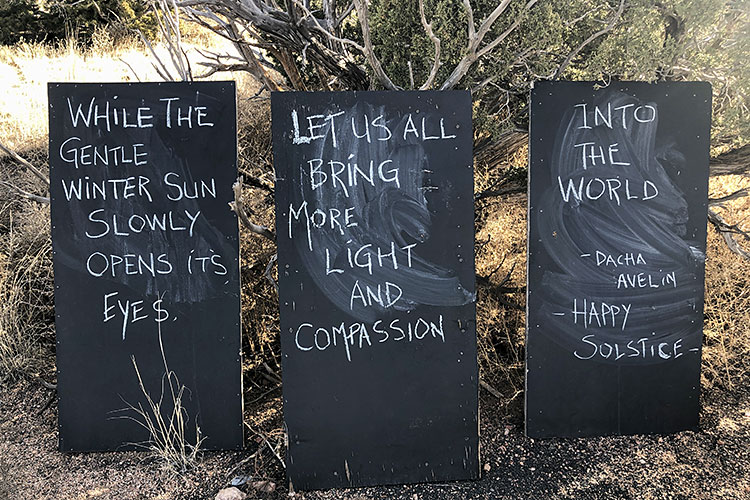 WHILE THE
GENTLE
WINTER SUN
SLOWLY
OPENS IT'S
EYES.
LET US ALL
BRING
MORE
LIGHT
AND
COMPASSION
INTO
THE
WORLD
- DACHA
AVELIN
- HAPPY
SOLSTICE -